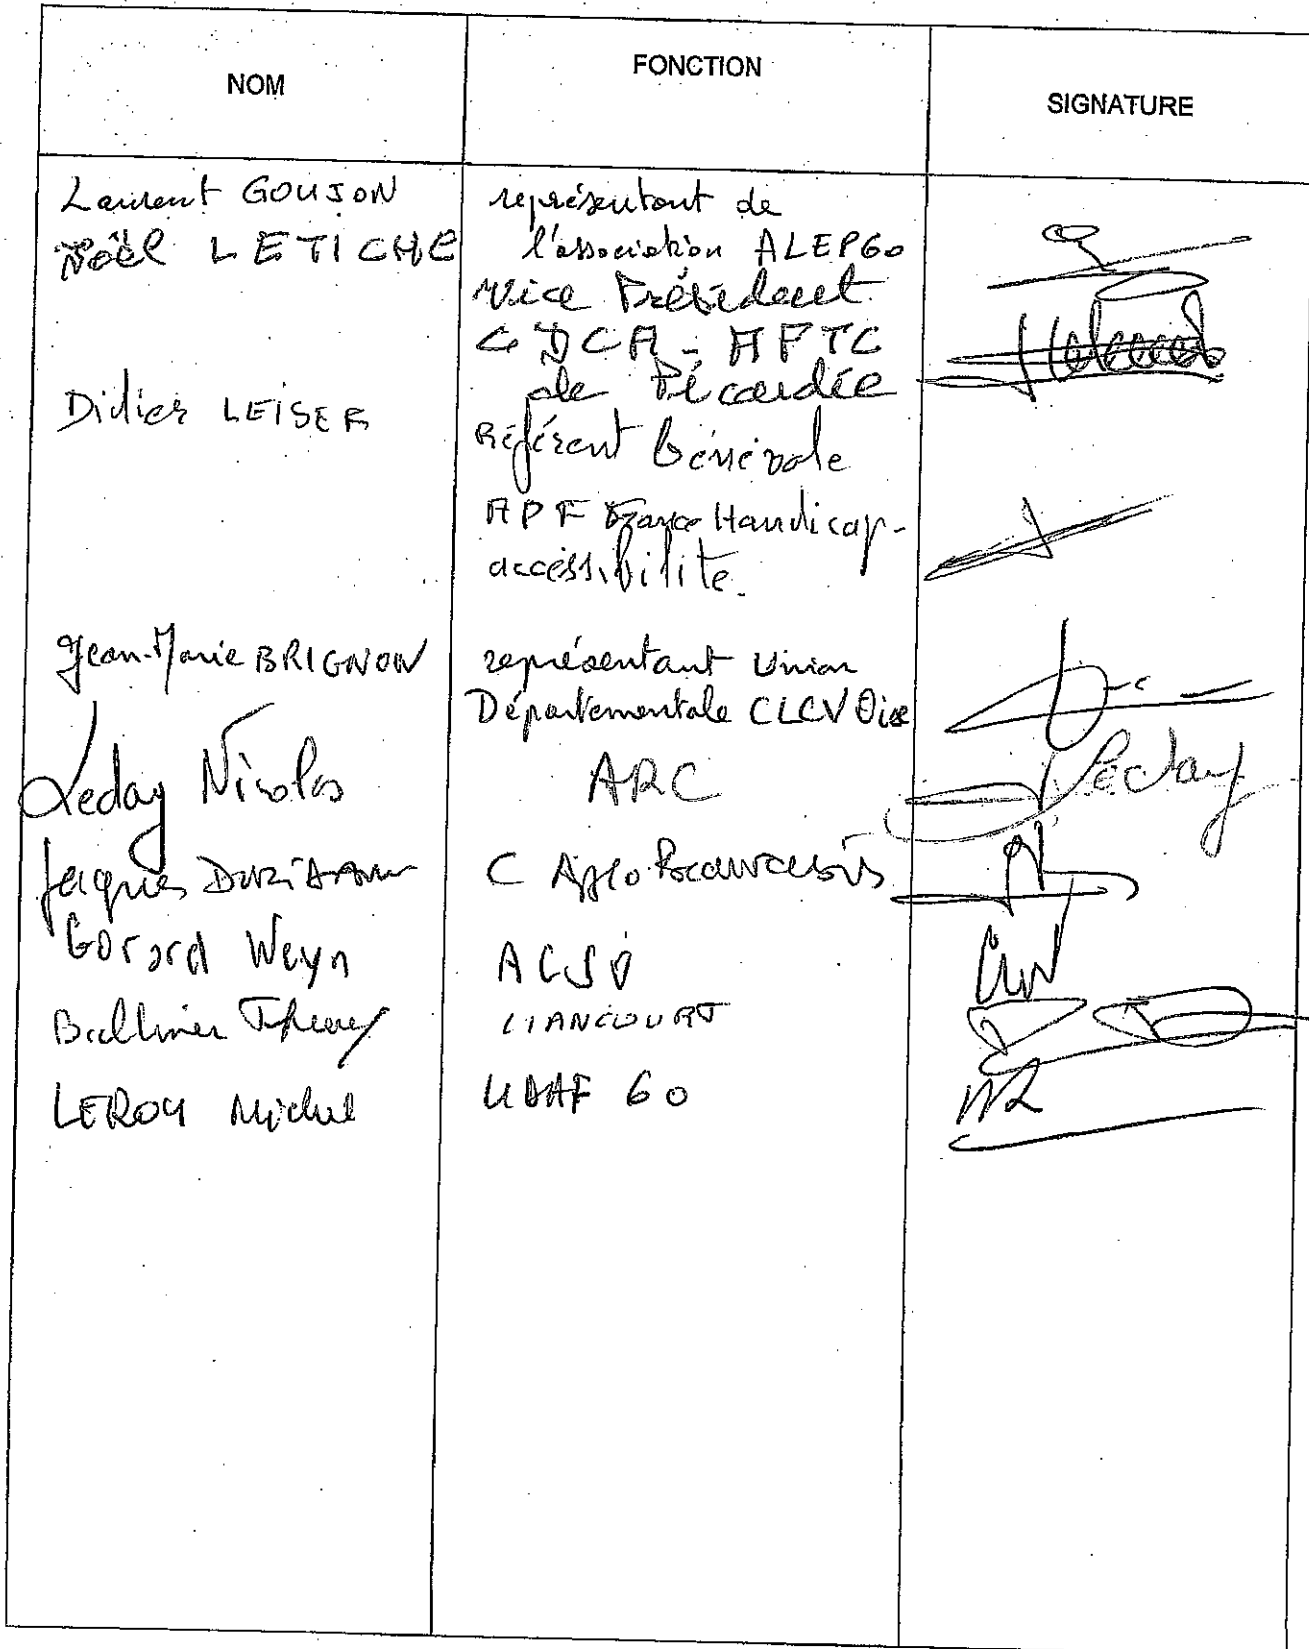 NOM
FONCTION
SIGNATURE
Laurent GOUJON
représentant de
l'association ALEP60
Noël LETICHE
Vice Président
CDCA - AFTC
de Picardie
Didier LEISER
Référent Bénévole
APF France Handicap-
accessibilité.
Jean-Marie BRIGNON
représentant Union
Départementale CLCV Oise
Leday Nicolas
ARC
Leday
Jacques
C Agglo Beauvaisis
Gérard Weyn
ACSO
Thierry
LIANCOURT
LEROY Michel
UDAF 60